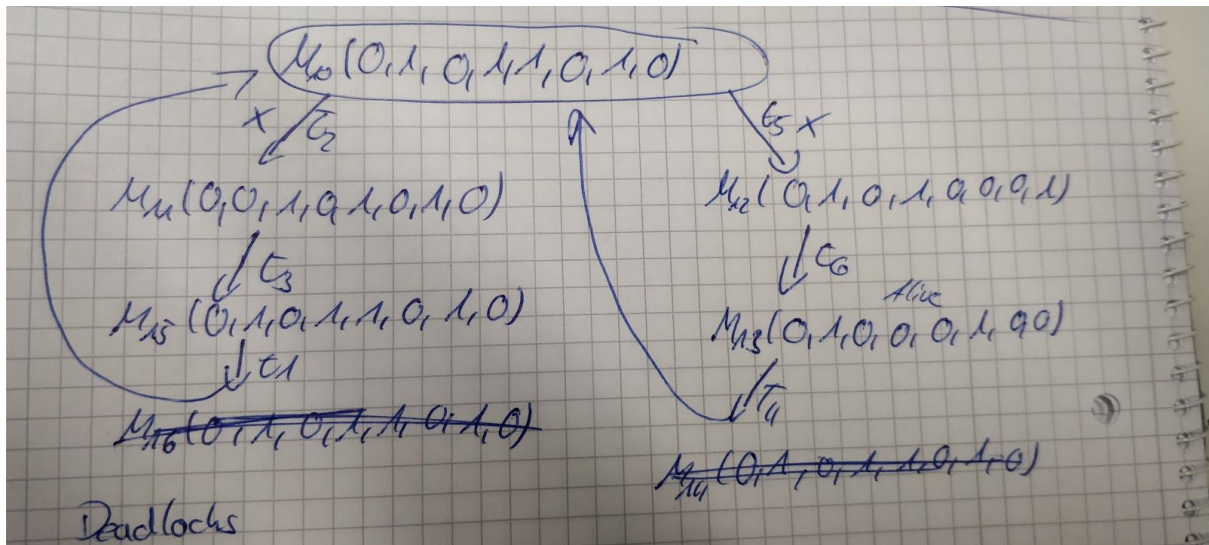 M₀(0,1,0,1,1,0,1,0)
x t₂
t₅ x
M₁₁(0,0,1,0,1,0,1,0)
M₁₂(0,1,0,1,0,0,0,1)
t₃
t₆
Alive
M₁₅(0,1,0,1,1,0,1,0)
M₁₃(0,1,0,0,0,1,0,0)
t1
T₄
M₁₆(0,1,0,1,1,0,1,0)
M₁₄(0,1,0,1,1,0,1,0)
Deadlocks